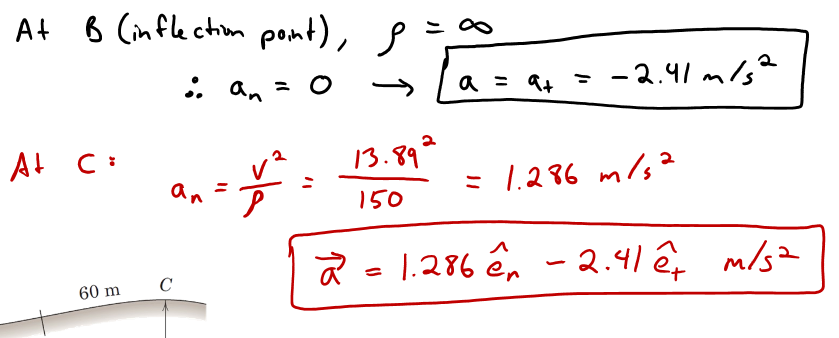 At B (inflection point), ρ = ∞
∴ aₙ = 0 → a = aₜ = -2.41 m/s²
At C: aₙ = v²/ρ = 13.89²/150 = 1.286 m/s²
a⃗ = 1.286 êₙ - 2.41 êₜ m/s²
60 m C